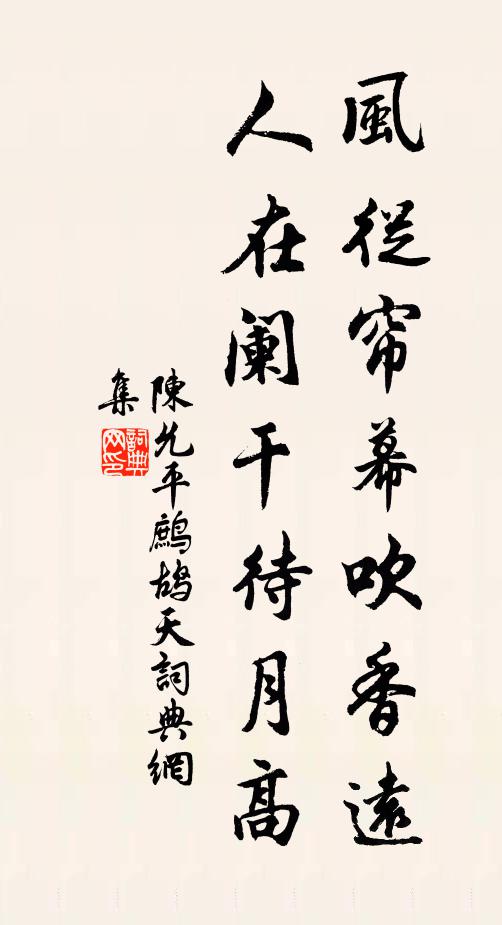 風從帘幕吹香遠
人在阑干待月高
陳允平鷓鴣天詞典網
集
詞典
网印